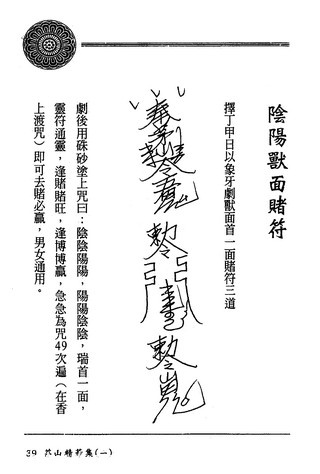 陰陽獸面賭符
擇丁甲日以象牙劇獸面首一面賭符三道
奉
令
勅
勅令
劇後用硃砂塗上咒曰：陰陰陽陽，陽陽陰陰，瑞首一面，
靈符通靈，逢賭賭旺，逢博博贏，急急為咒49次遍（在香
上渡咒）即可去賭必贏，男女通用。
39 茅山精粹集(一)